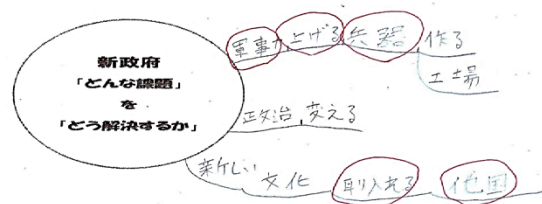 新政府
「どんな課題」
を
「どう解決するか」
軍事力 上げる 兵器 作る
工場
政治 変える
新しい 文化 取り入れる 他国